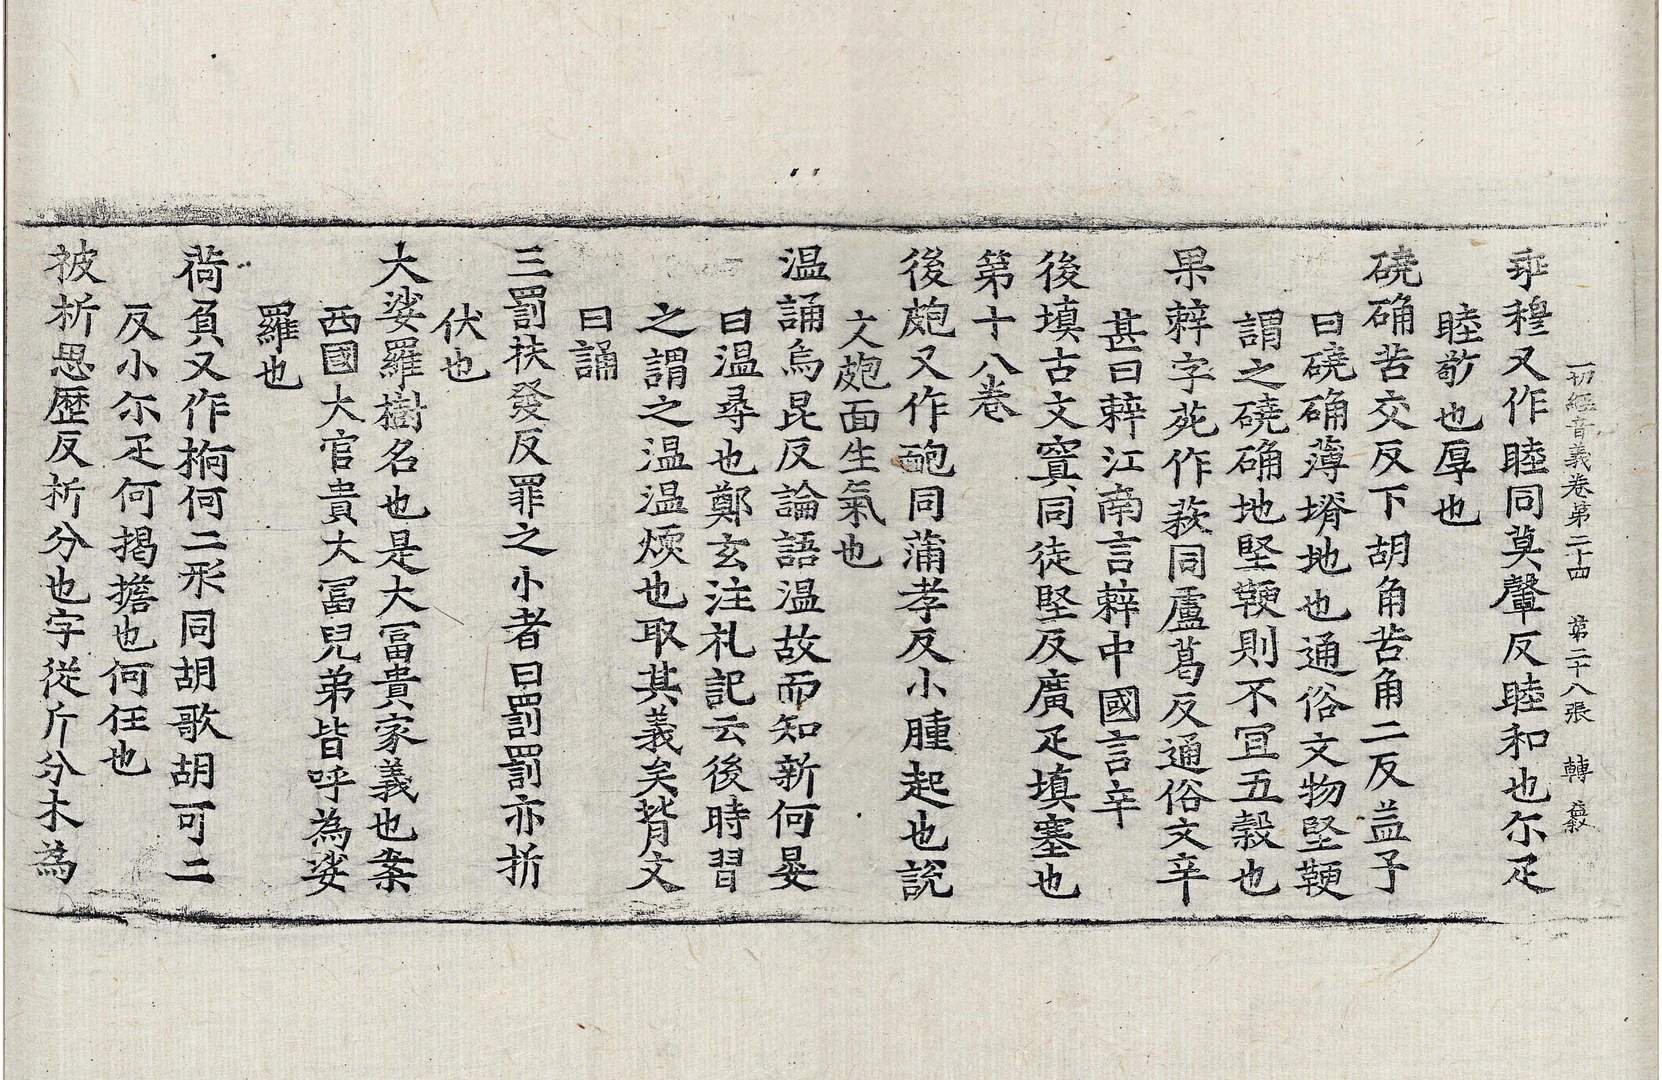 一切經音義卷第二十四　第二十八張　轉嚴
乖穆又作睦同莫聲反睦和也尒疋
睦敬也厚也
磽确苦交反下胡角苦角二反孟子
曰磽确薄塉地也通俗文物堅鞕
謂之磽确地堅鞕則不宜五穀也
果辢字苑作䔾同盧葛反通俗文辛
甚曰辢江南言辢中國言辛
後填古文窴同徒堅反廣疋填塞也
第十八卷
後皰又作靤同蒲孝反小腫起也說
文皰面生氣也
温誦烏昆反論語温故而知新何晏
曰温尋也鄭玄注礼記云後時習
之謂之温温燸也取其義矣背文
曰誦
三罰扶發反罪之小者曰罰罰亦折
伏也
大娑羅樹名也是大冨貴家義也案
西國大官貴大冨兒弟皆呼為娑
羅也
荷負又作抲何二形同胡歌胡可二
反小尒疋何揭擔也何任也
被析思歷反析分也字從斤分木為